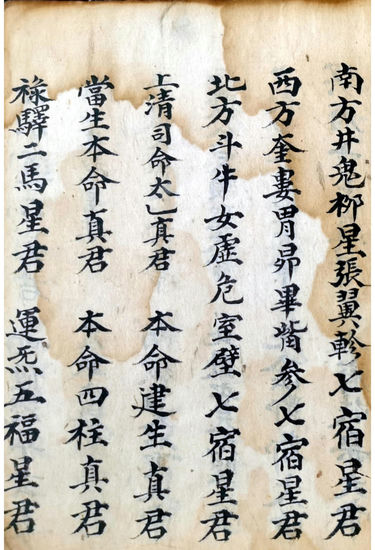 南方井鬼柳星張翼軫七宿星君
西方奎婁胃昴畢觜參七宿星君
北方斗牛女虛危室壁七宿星君
上清司命太乙真君 本命建生真君
當生本命真君 本命四柱真君
祿驛二馬星君 運炁五福星君